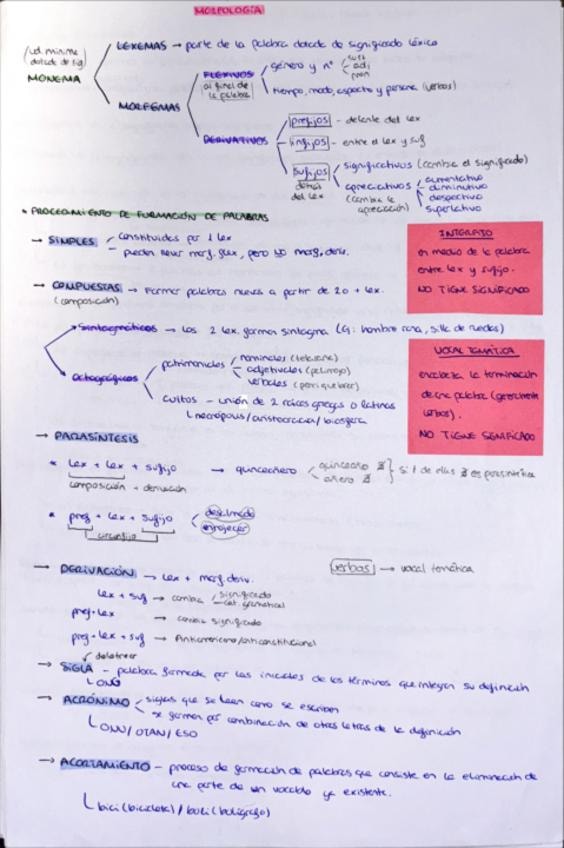 MORFOLOGÍA
(ud. mínima dotada de sig)
MONEMA
LEXEMAS → parte de la palabra dotada de significado léxico
MORFEMAS
FLEXIVOS
al final de la palabra
género y nº
sust
adj
pron
tiempo, modo, aspecto y persona (verbos)
DERIVATIVOS
prefijos - delante del lex
infijos - entre el lex y suf
sufijos
detrás del lex
significativos (cambia el significado)
apreciativos (cambia la apreciación)
aumentativo
diminutivo
despectivo
superlativo
* PROCEDIMIENTO DE FORMACIÓN DE PALABRAS
→ SIMPLES
constituidas por 1 lex
pueden llevar morf. flex, pero NO morf. deriv.
INTERFIJO
en medio de la palabra
entre lex y sufijo.
NO TIENE SIGNIFICADO
→ COMPUESTAS → Formar palabras nuevas a partir de 2 o + lex.
(composición)
Sintagmáticos → Los 2 lex. forman sintagma (Ej: hombre rana, silla de ruedas)
Ortográficos
patrimoniales
nominales (telaraña)
adjetivales (pelirrojo)
verbales
cultos - unión de 2 raíces griegas o latinas
necrópolis/aristocracia/biosfera
VOCAL TEMÁTICA
encabeza la terminación
de una palabra (generalmente
verbos).
NO TIENE SIGNIFICADO
→ PARASÍNTESIS
* Lex + Lex + sufijo → quinceañero
quinceaño ∄
añero ∄
si 1 de ellas ∄ es parasintética
composición + derivación
* pref + Lex + sufijo
desalmado
enrojecer
circunfijo
→ DERIVACIÓN → Lex + morf. deriv.
verbos → vocal temática
Lex + suf → cambia
significado
cat. gramatical
pref + Lex → cambia significado
pref + Lex + suf → Antiamericano/anticonstitucional
deletrear
→ SIGLA - palabra formada por las iniciales de los términos que integran su definición
ONG
→ ACRÓNIMO
siglas que se leen como se escriben
se forman por combinación de otras letras de la definición
ONU/OTAN/ESO
→ ACORTAMIENTO - proceso de formación de palabras que consiste en la eliminación de
una parte de un vocablo ya existente.
bici (bicicleta) / boli (bolígrafo)